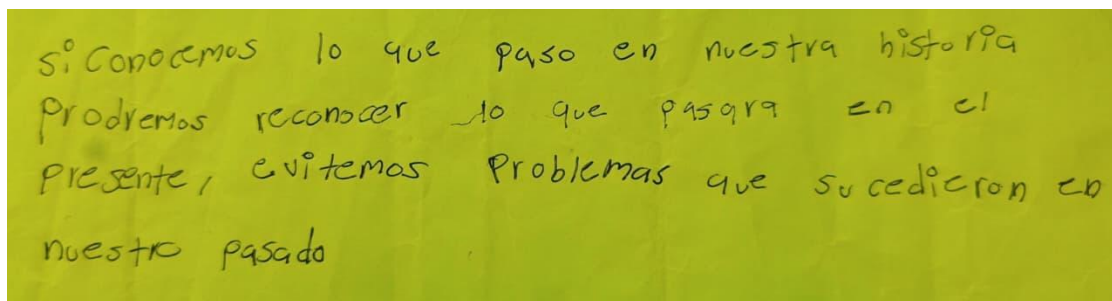 si Conocemos lo que paso en nuestra historia
Prodremos reconocer lo que pasara en el
presente, evitemos Problemas que sucedieron en
nuestro pasado